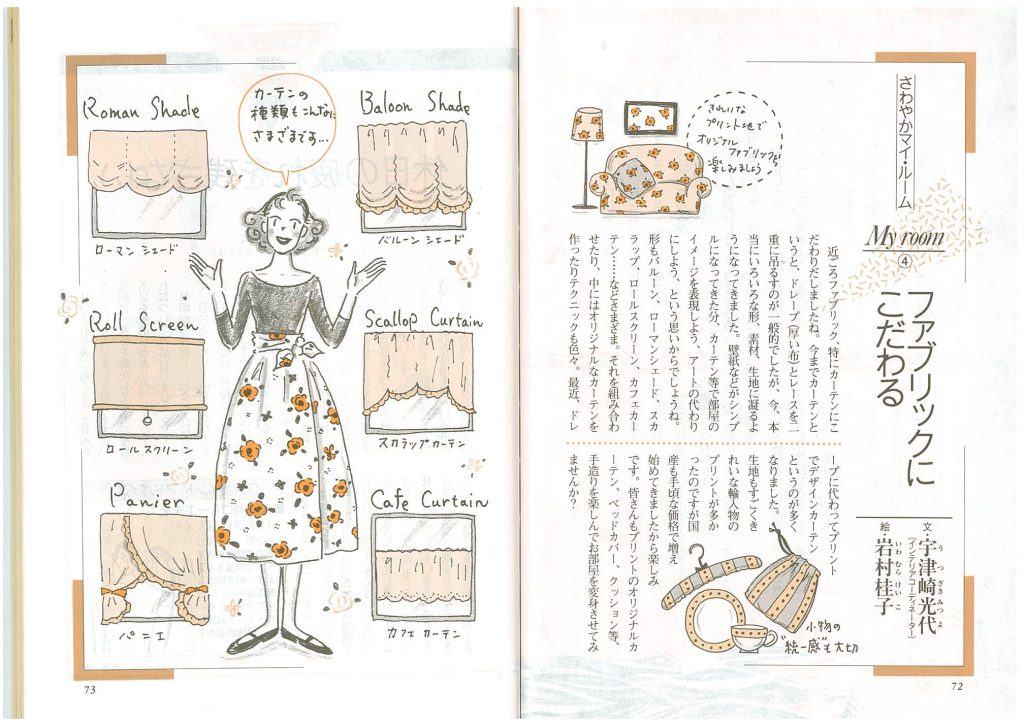 さわやかマイ・ルーム
My room
④
ファブリックに
こだわる
文・宇津崎光代
うつざきみつよ
(インテリアコーディネーター)
絵・岩村桂子
いわむらけいこ
きれいな
プリント地で
オリジナル
ファブリックを
楽しみましょう
近ごろファブリック、特にカーテンにこ
だわりだしましたね。今までカーテンと
いうと、ドレープ(厚い布)とレースを二
重に吊るすのが一般的でしたが、今、本
当にいろいろな形、素材、生地に凝るよ
うになってきました。壁紙などがシンプ
ルになってきた分、カーテン等で部屋の
イメージを表現しよう、アートの代わり
にしよう、という思いからでしょうね。
形もバルーン、ローマンシェード、スカ
ラップ、ロールスクリーン、カフェカー
テン……などさまざま。それを組み合わ
せたり、中にはオリジナルなカーテンを
作ったりテクニックも色々。最近、ドレ
ープに代わってプリント
でデザインカーテン
というのが多く
なりました。
生地もすごくき
れいな輸入物の
プリントが多か
ったのですが国
産も手頃な価格で増え
始めてきましたから楽しみ
です。皆さんもプリントのオリジナルカ
ーテン、ベッドカバー、クッション等、
手造りを楽しんでお部屋を変身させてみ
ませんか?
小物の
“統一感”も大切
72
カーテンの
種類もこんなに
さまざまです…
Roman Shade
ローマン シェード
Baloon Shade
バルーン シェード
Roll Screen
ロール スクリーン
Scallop Curtain
スカラップ カーテン
Panier
パニエ
Cafe Curtain
カフェ カーテン
73